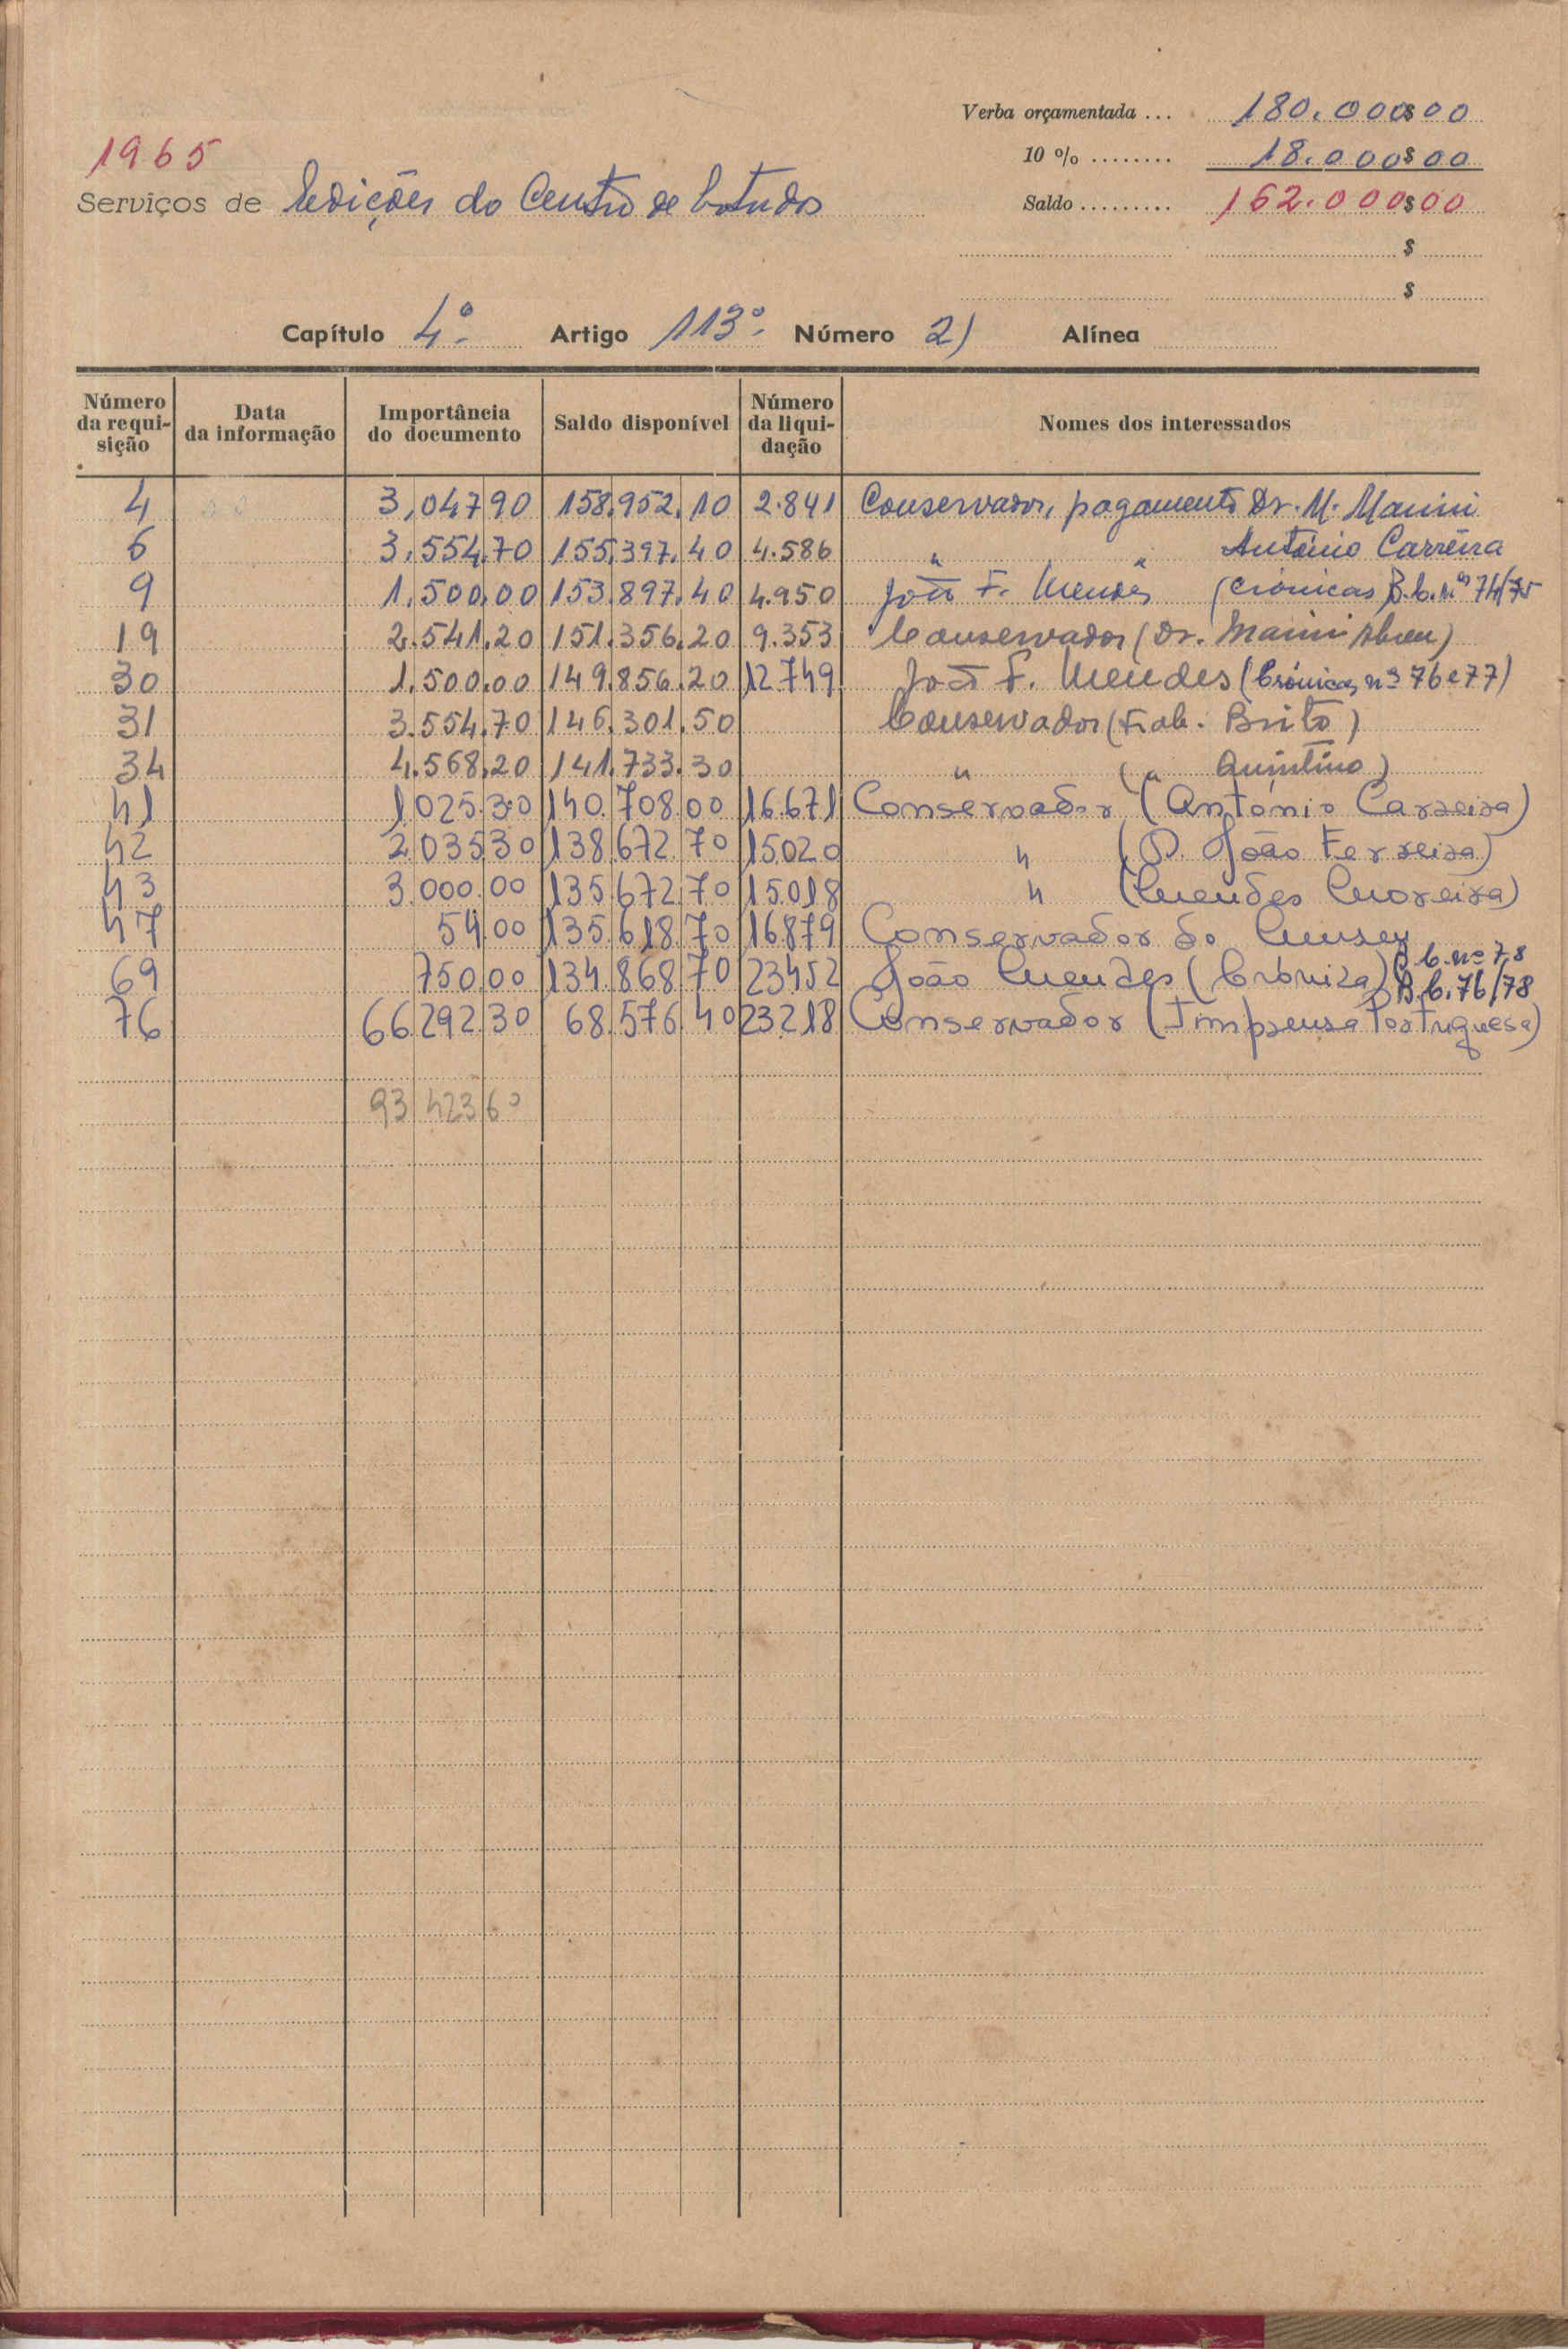 Verba orçamentada ... 180.000$00
1965
10 % ........ 18.000$00
Serviços de Edições do Centro de Estudos
Saldo ......... 162.000$00
$
$
Capítulo 4.º Artigo 113º. Número 2) Alínea
Número da requi-sição Data da informação Importância do documento Saldo disponível Número da liqui-dação Nomes dos interessados
4 3.047 90 158.952.10 2.841 Conservador, pagamento Dr. M. Marini
6 3.554.70 155.397.40 4.586 " " António Carreira
9 1.500.00 153.897.40 4.950 João F. Mendes (Crónicas B.C. n.os 74/75
19 2.541.20 151.356.20 9.353 Conservador (Dr. Marini
30 1.500.00 149.856.20 12.749 João F. Mendes (Crónicas nº 76 e 77)
31 3.554.70 146.301.50 Conservador (Trab. Brito)
34 4.568.20 141.733.30 " ( " Quintino)
41 1025.30 140.708.00 16.671 Conservador (António Carreira)
42 2 035 30 138 672 70 15020 " (P. João Ferreira)
43 3.000.00 135 672 70 15.018 " (Mendes Moreira)
47 54 00 135.618.70 16879 Conservador do Museu
69 750 00 134.868 70 23452 João Mendes (Crónica) B.C. nº 78
76 66.292.30 68.576.40 23.218 Conservador (Imprensa Portuguesa) B.C. 76/78
93 423 60